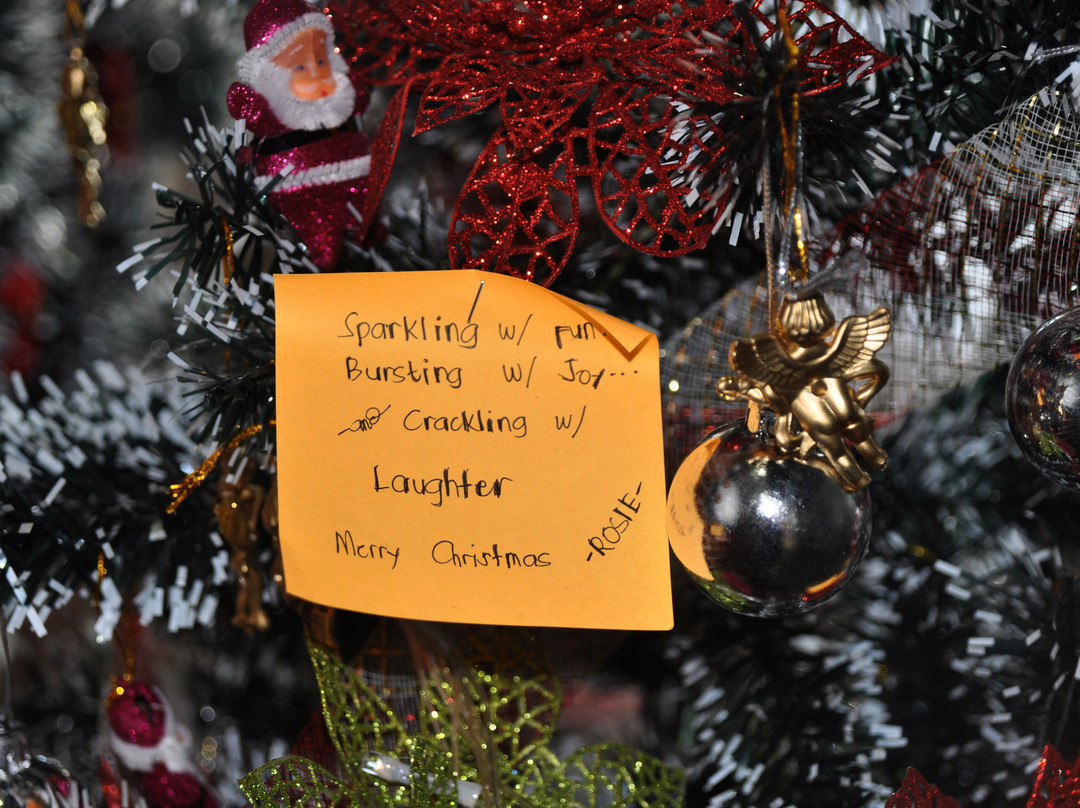 Sparkling w/ fun.
Bursting w/ Joy...
and Crackling w/
Laughter
Merry Christmas
-ROSIE-